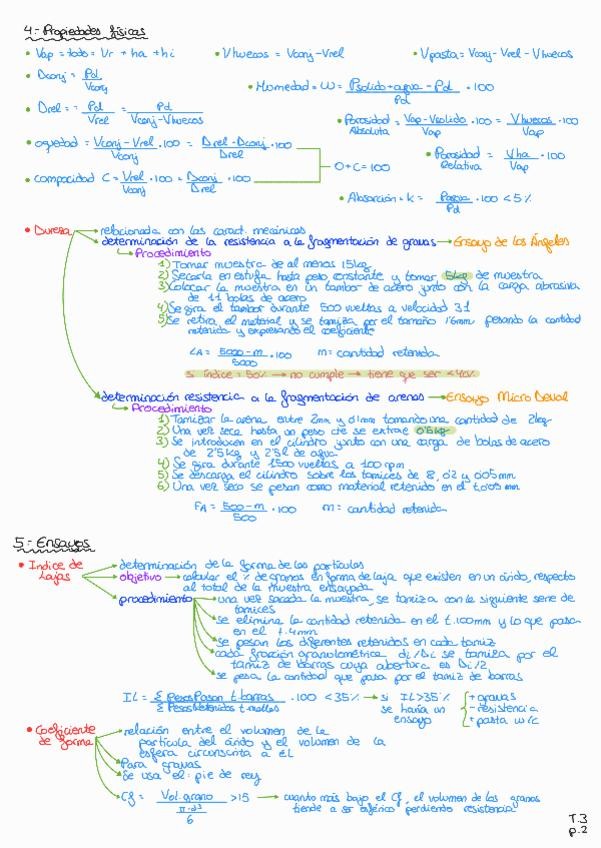 4.- Propiedades físicas
• Vap = todo = Vr + ha + hi • Vhuecos = Vconj - Vrel • Vpasta = Vconj - Vrel - Vhuecos
• Dconj = Pd / Vconj • Humedad = W = Psólido+agua - Pd / Pd · 100
• Drel = Pd / Vrel = Pd / Vconj - Vhuecos • Porosidad Absoluta = Vap - Vsólido / Vap · 100 = Vhuecos / Vap · 100
• oquedad = Vconj - Vrel / Vconj · 100 = Drel - Dconj / Drel · 100 • Porosidad Relativa = Vha / Vap · 100
O + C = 100
• compacidad C = Vrel / Vconj · 100 = Dconj / Drel · 100
• Absorción = k = / Pd · 100 < 5%
• Dureza → relacionada con las caract. mecánicas
determinación de la resistencia a la fragmentación de gravas → Ensayo de Los Ángeles
→ Procedimiento
1) Tomar muestra de al menos 15kg
2) Secarla en estufa hasta peso constante y tomar 5kg de muestra
3) Colocar la muestra en un tambor de acero junto con la carga abrasiva
de 11 bolas de acero
4) Se gira el tambor durante 500 vueltas a velocidad 31
5) Se retira el material y se tamiza por el tamaño 1'6mm pesando la cantidad
retenida y expresando el coeficiente
LA = 5000 - m / 5000 · 100 m = cantidad retenida
si índice = 50% → no cumple → tiene que ser < 40%
determinación resistencia a la fragmentación de arenas → Ensayo Micro Deval
→ Procedimiento
1) Tamizar la arena entre 2mm y 0'1mm tomando una cantidad de 2kg
2) Una vez seca hasta un peso cte se extrae 0'5kg
3) Se introducen en el cilindro junto con una carga de bolas de acero
de 2'5kg y 2'5l de agua
4) Se gira durante 1500 vueltas a 100 rpm
5) Se descarga el cilindro sobre los tamices de 8, 0'2 y 0'05mm
6) Una vez seco se pesan como material retenido en el t.0'05 mm
FA = 500 - m / 500 · 100 m = cantidad retenida
5.- Ensayos
• Indice de lajas → determinación de la forma de las partículas
→ objetivo → calcular el % de granos en forma de laja que existen en un árido, respecto
al total de la muestra ensayada
→ procedimiento → una vez sacada la muestra, se tamiza con la siguiente serie de
tamices
→ se elimina la cantidad retenida en el t.100mm y lo que pasa
en el t.4mm
→ se pesan los diferentes retenidos en cada tamiz
→ cada fracción granulométrica di/Di se tamiza por el
tamiz de barras cuya abertura es Di/2
→ se pesa la cantidad que pasa por el tamiz de barras
IL = Σ Pesos Pasan t barras / Σ Pesos Retenidos t mallas · 100 < 35% → si IL > 35% se haría un ensayo
+ gravas
- resistencia
+ pasta w/c
• Coeficiente de forma → relación entre el volumen de la
partícula del árido y el volumen de la
esfera circunscrita a él
→ Para gravas
→ Se usa el: pie de rey
→ Cf = Vol. grano / π·d³ / 6 > 15 → cuanto más bajo el Cf, el volumen de los granos
tiende a ser esférico perdiendo resistencia
T.3
p.2